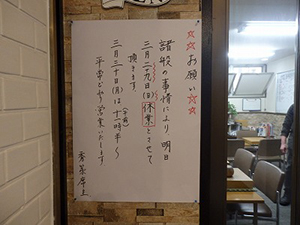 ☆☆お願い☆☆
諸般の事情により、明日
三月二十九日(日)休業とさせて
頂きます。
三月三十日(月)は十一時半〜
平常どおり営業いたします。
店主